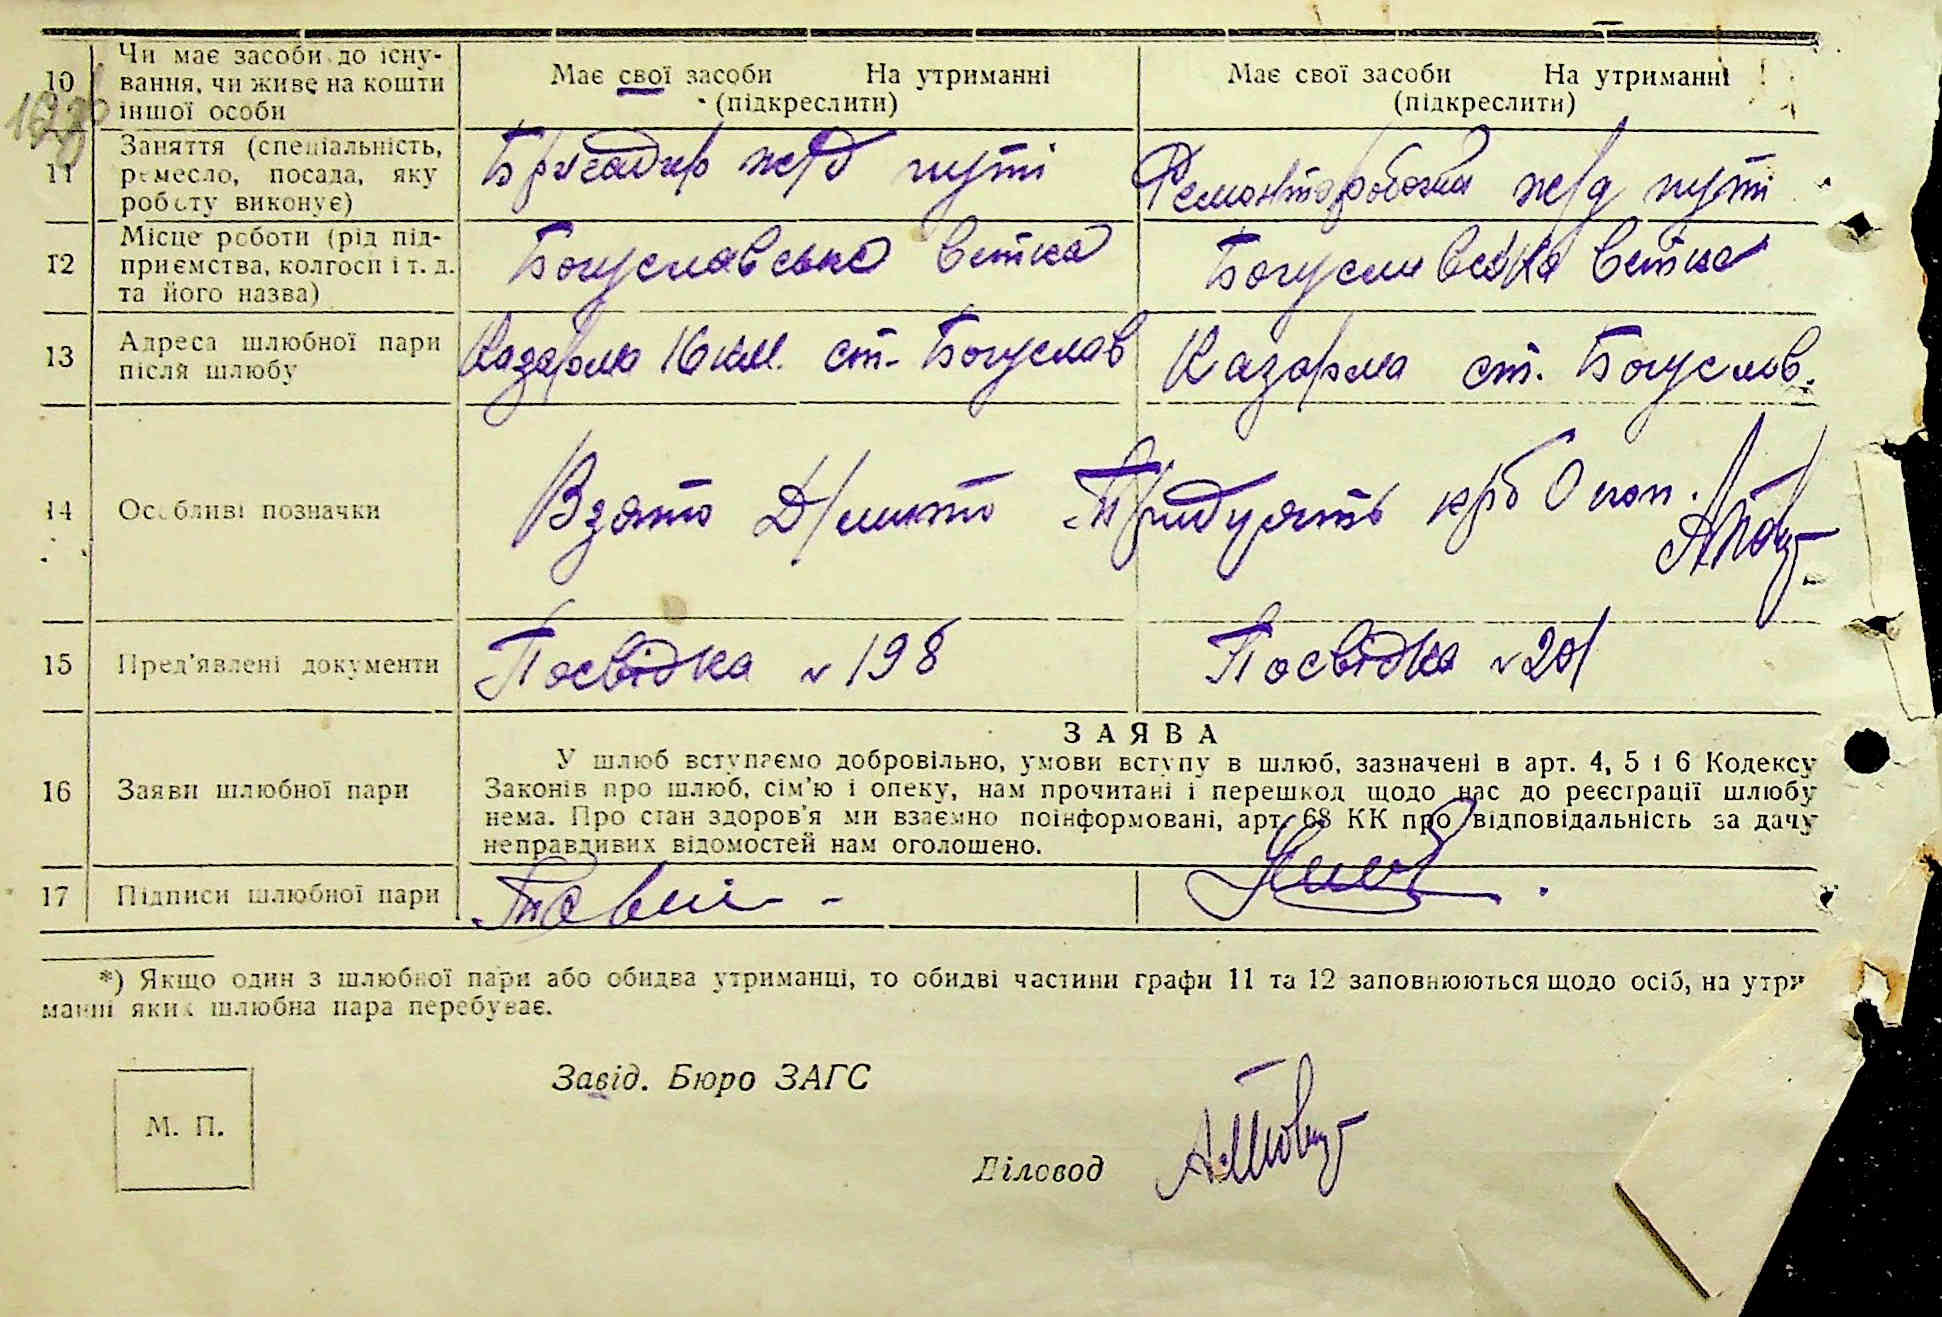 10 Чи має засоби до існу-
вання, чи живе на кошти
іншої особи
Має свої засоби На утриманні
(підкреслити)
Має свої засоби На утриманні
(підкреслити)
11 Заняття (спеціальність,
ремесло, посада, яку
роботу виконує)
Бригадир ж/д путі
Ремонтоворобочий ж/д путі
12 Місце роботи (рід під-
приємства, колгосп і т. д.
та його назва)
Богуславська вєтка
Богуславська вєтка
13 Адреса шлюбної пари
після шлюбу
Казарма 16 км. ст. Богуслав
Казарма ст. Богуслов.
14 Особливі позначки
Взято Д/мито Тридцять крб 0 коп.
15 Пред'явлені документи
Посвідка N 198
Посвідка N 201
16 Заяви шлюбної пари
ЗАЯВА
У шлюб вступаємо добровільно, умови вступу в шлюб, зазначені в арт. 4, 5 і 6 Кодексу
Законів про шлюб, сім'ю і опеку, нам прочитані і перешкод щодо нас до реєстрації шлюбу
нема. Про стан здоров'я ми взаємно поінформовані, арт. 68 КК про відповідальність за дачу
неправдивих відомостей нам оголошено.
17 Підписи шлюбної пари
*) Якщо один з шлюбної пари або обидва утриманці, то обидві частини графи 11 та 12 заповнюються щодо осіб, на утри
манні яких шлюбна пара перебуває.
Завід. Бюро ЗАГС
М. П.
Діловод